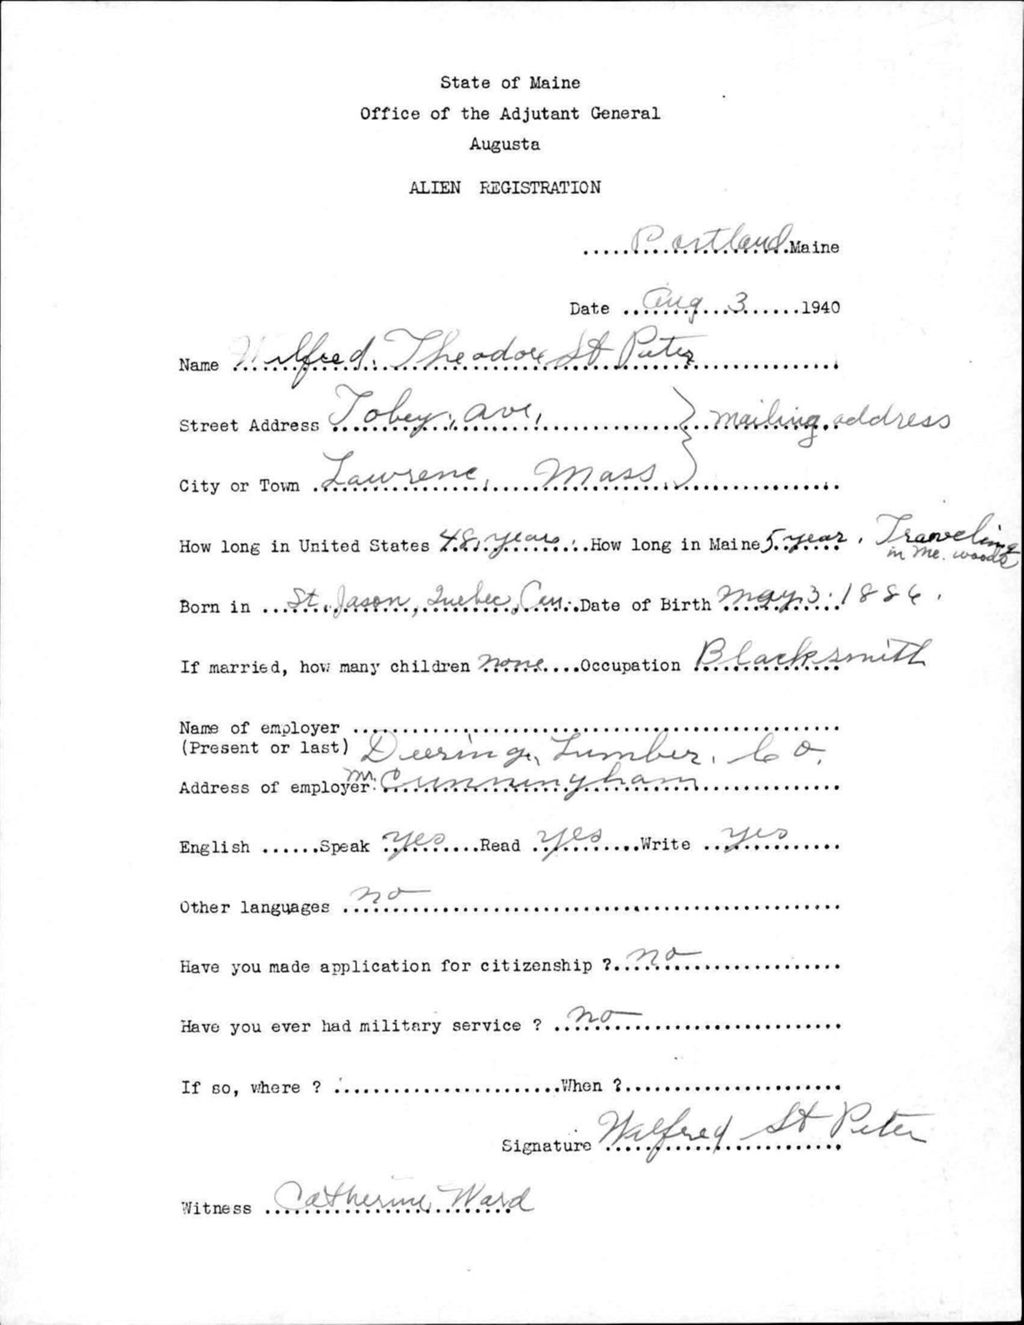 State of Maine
Office of the Adjutant General
Augusta
ALIEN REGISTRATION
.....Portland.Maine
Date ..Aug...3......1940
Name Wilfred. Theodore St Peter
Street Address Tobey, ave, } mailing address
City or Town Lawrenc, Mass
How long in United States 48, years. How long in Maine 5 year. Traveling
in Me. woods
Born in ...St. Jason, Quebec, Can. Date of Birth May 3. 1886.
If married, how many children none....Occupation Blacksmith
Name of employer
(Present or last) Deering, Lumber, Co,
Address of employer Mr. Cunningham
English ......Speak yes.....Read yes.....Write ..yes
Other languages no
Have you made application for citizenship ?..no
Have you ever had military service ? ..no
If so, where ? ......................When ?......................
Signature Wilfred St Peter
Witness Catherine Ward